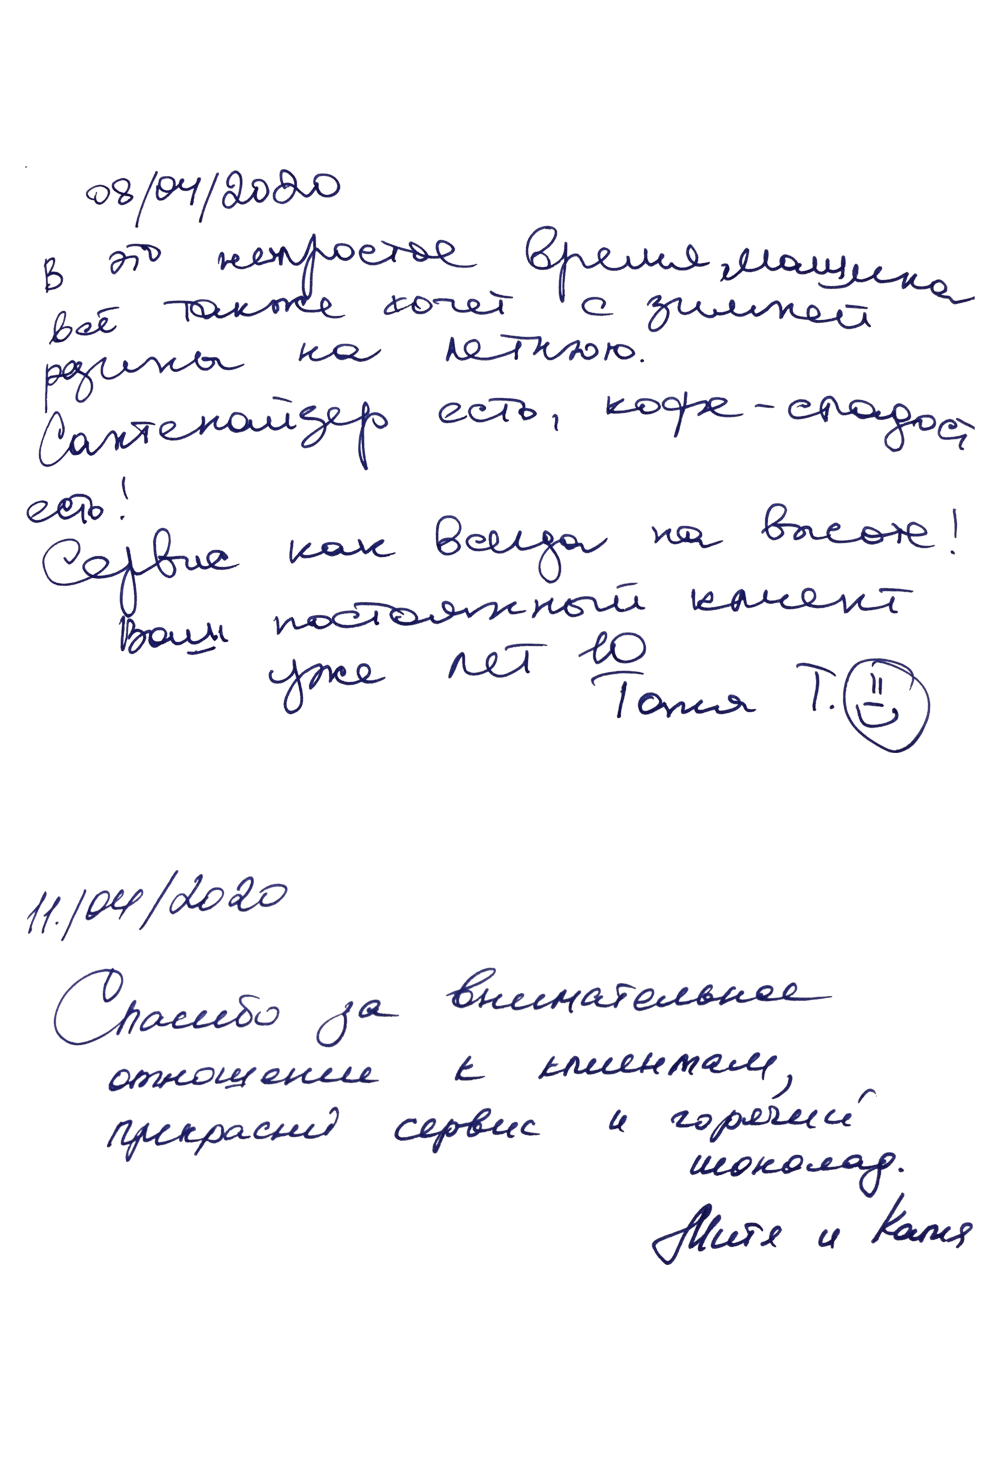 08/04/2020
В это непростое время, машина
всё также хочет с зимней
резины на летнюю.
Санитайзер есть, кофе-сладост
есть!
Сервис как всегда на высоте!
Ваш постоянный клиент
уже лет 10
Таня Т.
11./04/2020
Спасибо за внимательное
отношение к клиентам,
прекрасный сервис и горячий
шоколад.
Митя и Катя